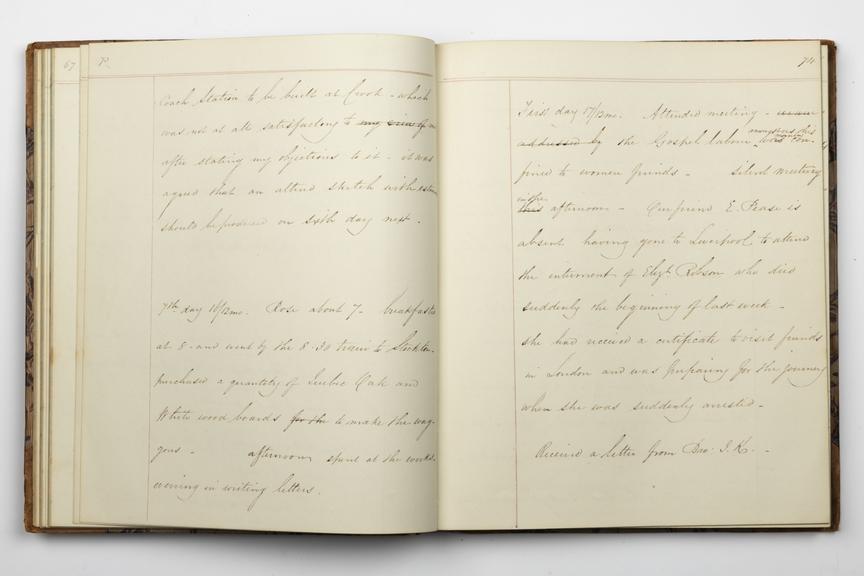 67
P.
Coach Station to be built at Crook - which
was not at all satisfactory to my view of me
after stating my objections to it - it was
agreed that an altered sketch with
should be produced on Sixth day next -
7th day 16/12mo. Rose about 7 - breakfasted
at 8 - and went by the 8.30 train to Stockton -
purchased a quantity of Quebec Oak and
White wood boards for the to make the wag-
gons - afternoon spent at the works.
evening in writing letters.
74
First day 17/12mo. Attended meeting -
addressed by the Gospel labour was con-
fined to women friends - Silent meeting
in the
this afternoon - Our friend E. Pease is
absent having gone to Liverpool to attend
the interment of Elizth. Robson who died
suddenly the beginning of last week -
She had received a certificate to visit friends
in London and was preparing for the journey
when she was suddenly arrested -
Received a letter from Bro: I. K. -